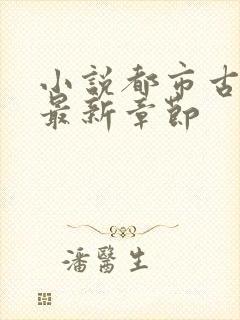 小說都市古
最新章節
潘醫生